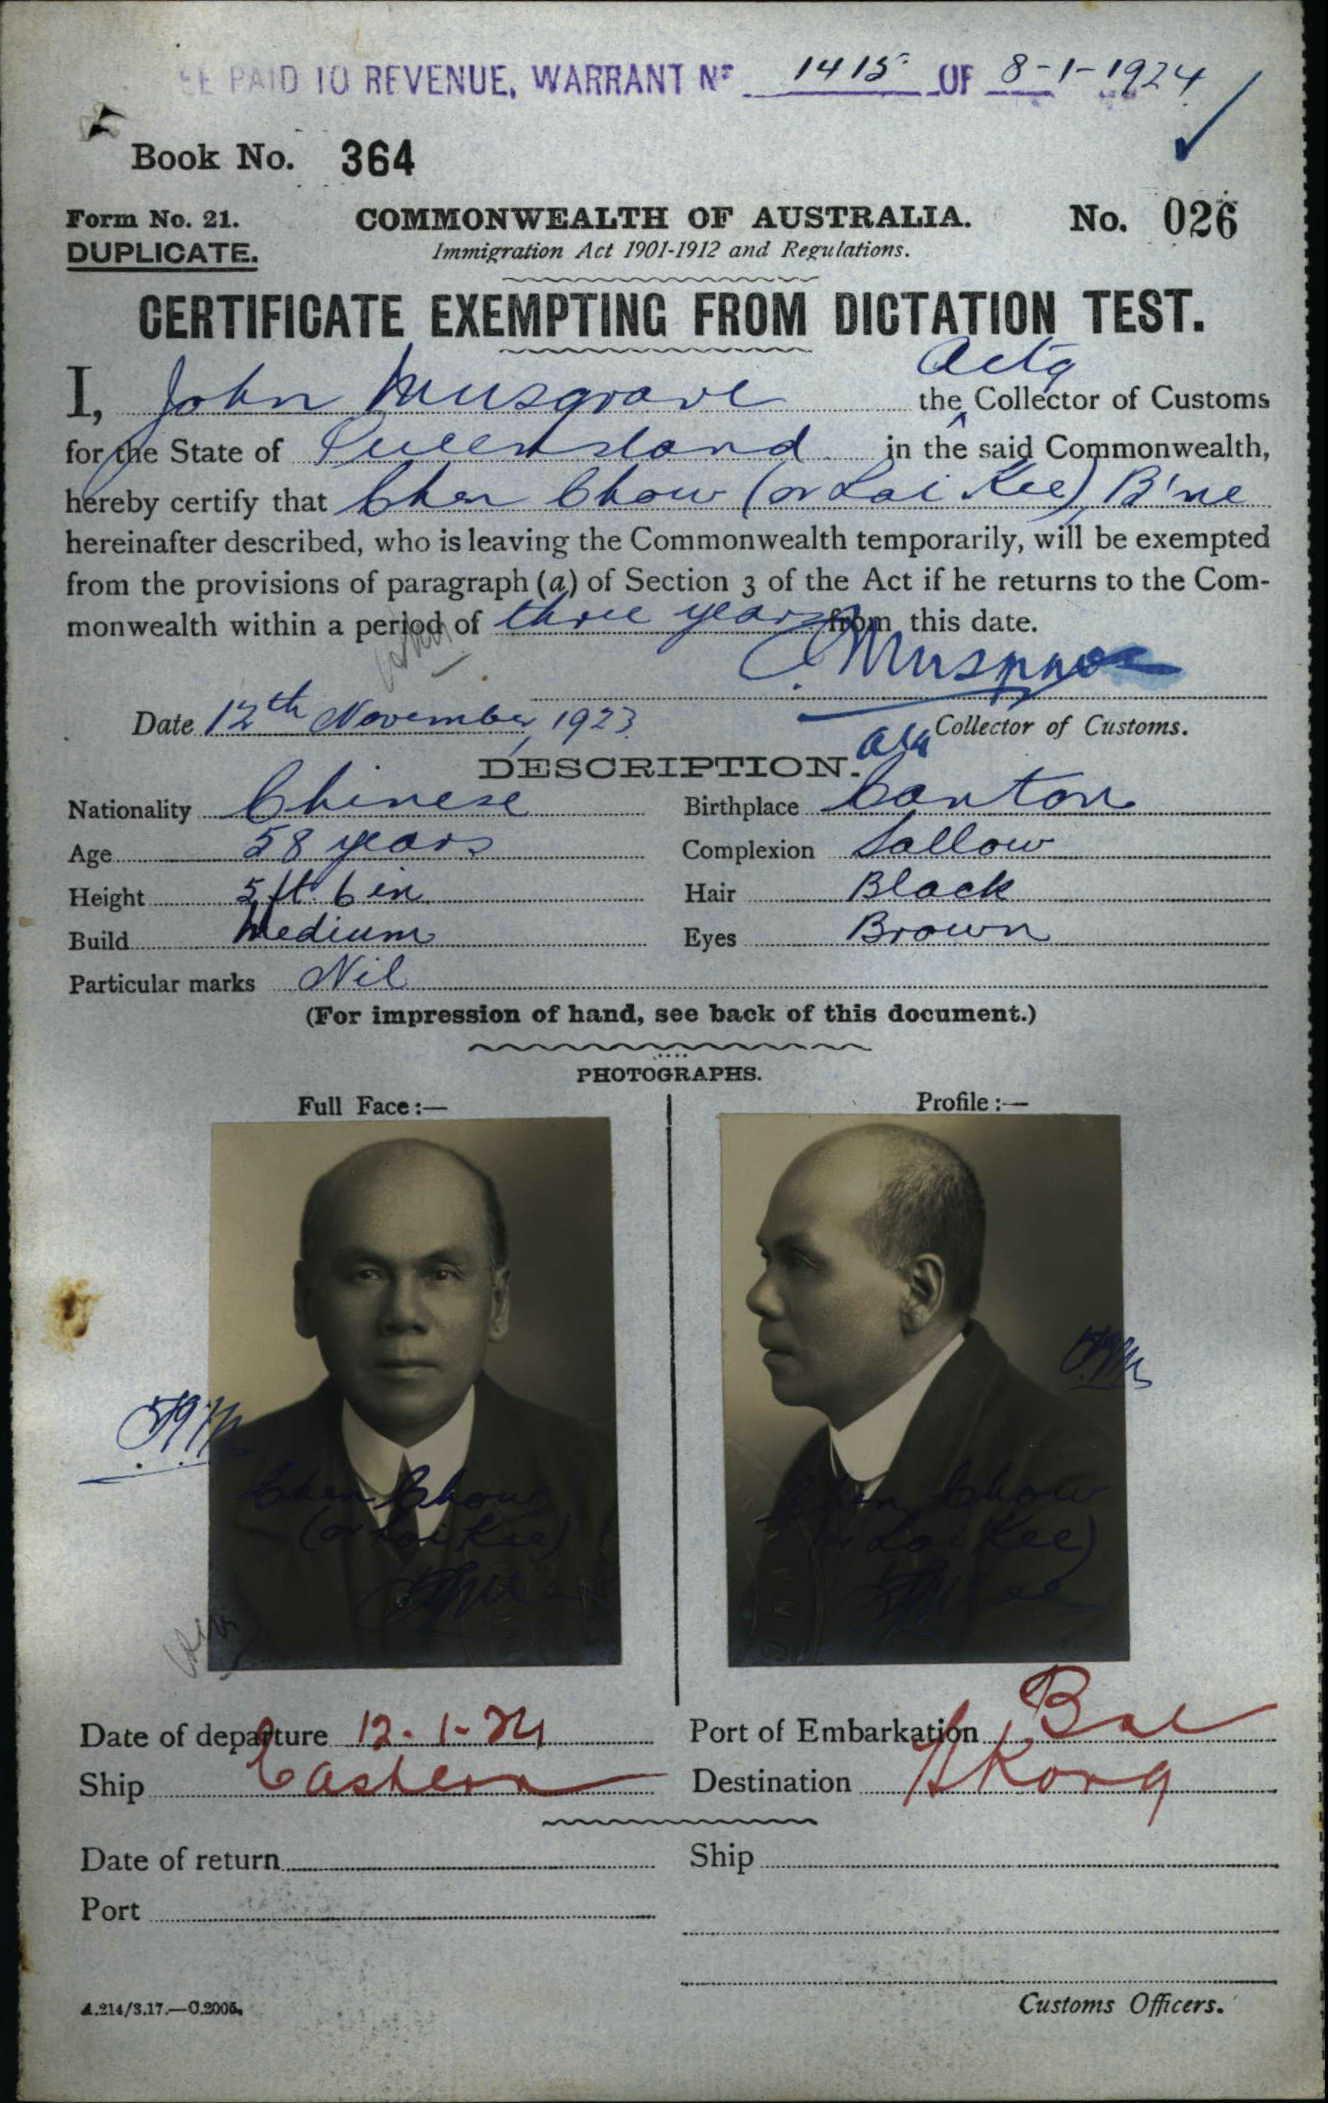 FEE PAID TO REVENUE, WARRANT No 1415 OF 8-1-1924
Book No. 364
Form No. 21. COMMONWEALTH OF AUSTRALIA. No. 026
DUPLICATE. Immigration Act 1901-1912 and Regulations.
CERTIFICATE EXEMPTING FROM DICTATION TEST.
Actg
I, John Musgrave the Collector of Customs
for the State of Queensland in the said Commonwealth,
hereby certify that Chen Chow (or Lai Kee), B'ne
hereinafter described, who is leaving the Commonwealth temporarily, will be exempted
from the provisions of paragraph (a) of Section 3 of the Act if he returns to the Com-
monwealth within a period of three years from this date.
Musgrave
Date 12th November, 1923 Collector of Customs.
DESCRIPTION.
Nationality Chinese Birthplace Canton
Age 58 years Complexion Sallow
Height 5 ft. 6 in Hair Black
Build Medium Eyes Brown
Particular marks Nil
(For impression of hand, see back of this document.)
PHOTOGRAPHS.
Full Face :— Profile :—
Chen Chow Chen Chow
(or Lai Kee) (or Lai Kee)
Date of departure 12.1.24 Port of Embarkation Bne
Ship Eastern Destination HKong
Date of return Ship
Port
A.214/3.17.—C.2005. Customs Officers.